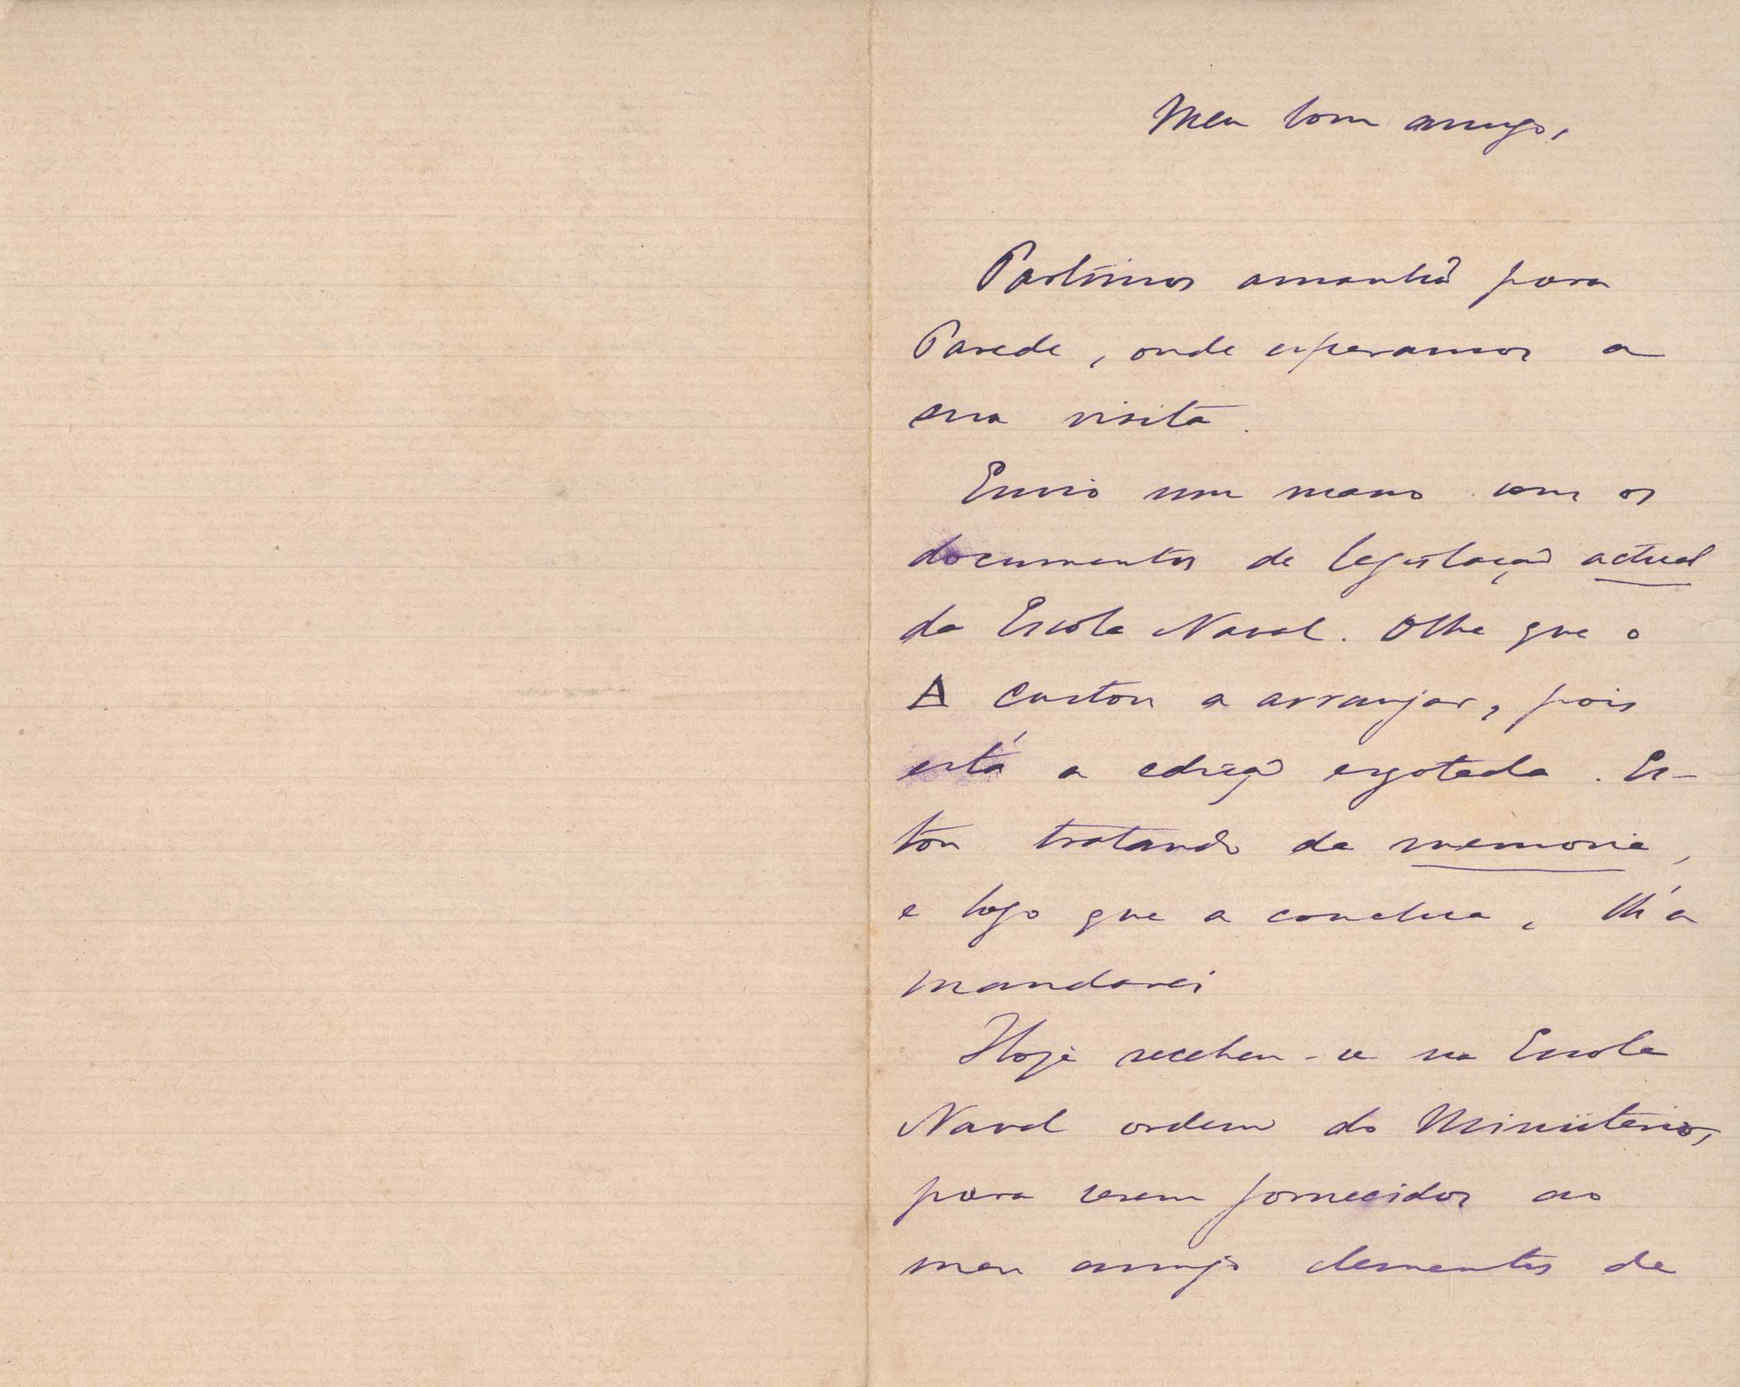 Meu bom amigo,
Partimos amanhã para
Parede, onde esperamos a
sua visita.
Envio um masso com os
documentos de legislação actual
da Escola Naval. Olhe que o
A custou a arranjar, pois
está a edição esgotada. Es-
tou tratando da memoria,
e logo que a conclua, lh'a
mandarei
Hoje recebeu-se na Escola
Naval ordem do Ministerio,
para serem fornecidos ao
meu amigo elementos de